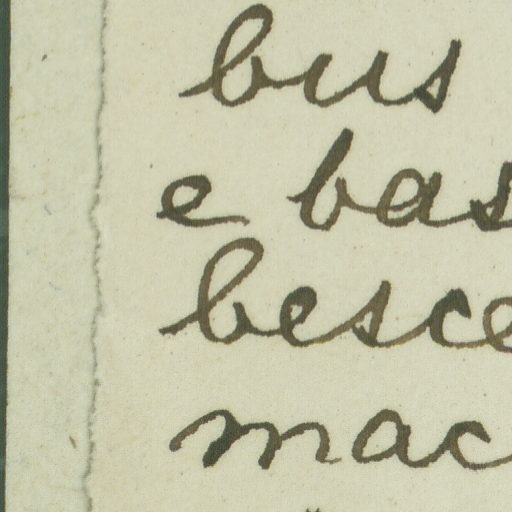 bus
e bas
besce
mac